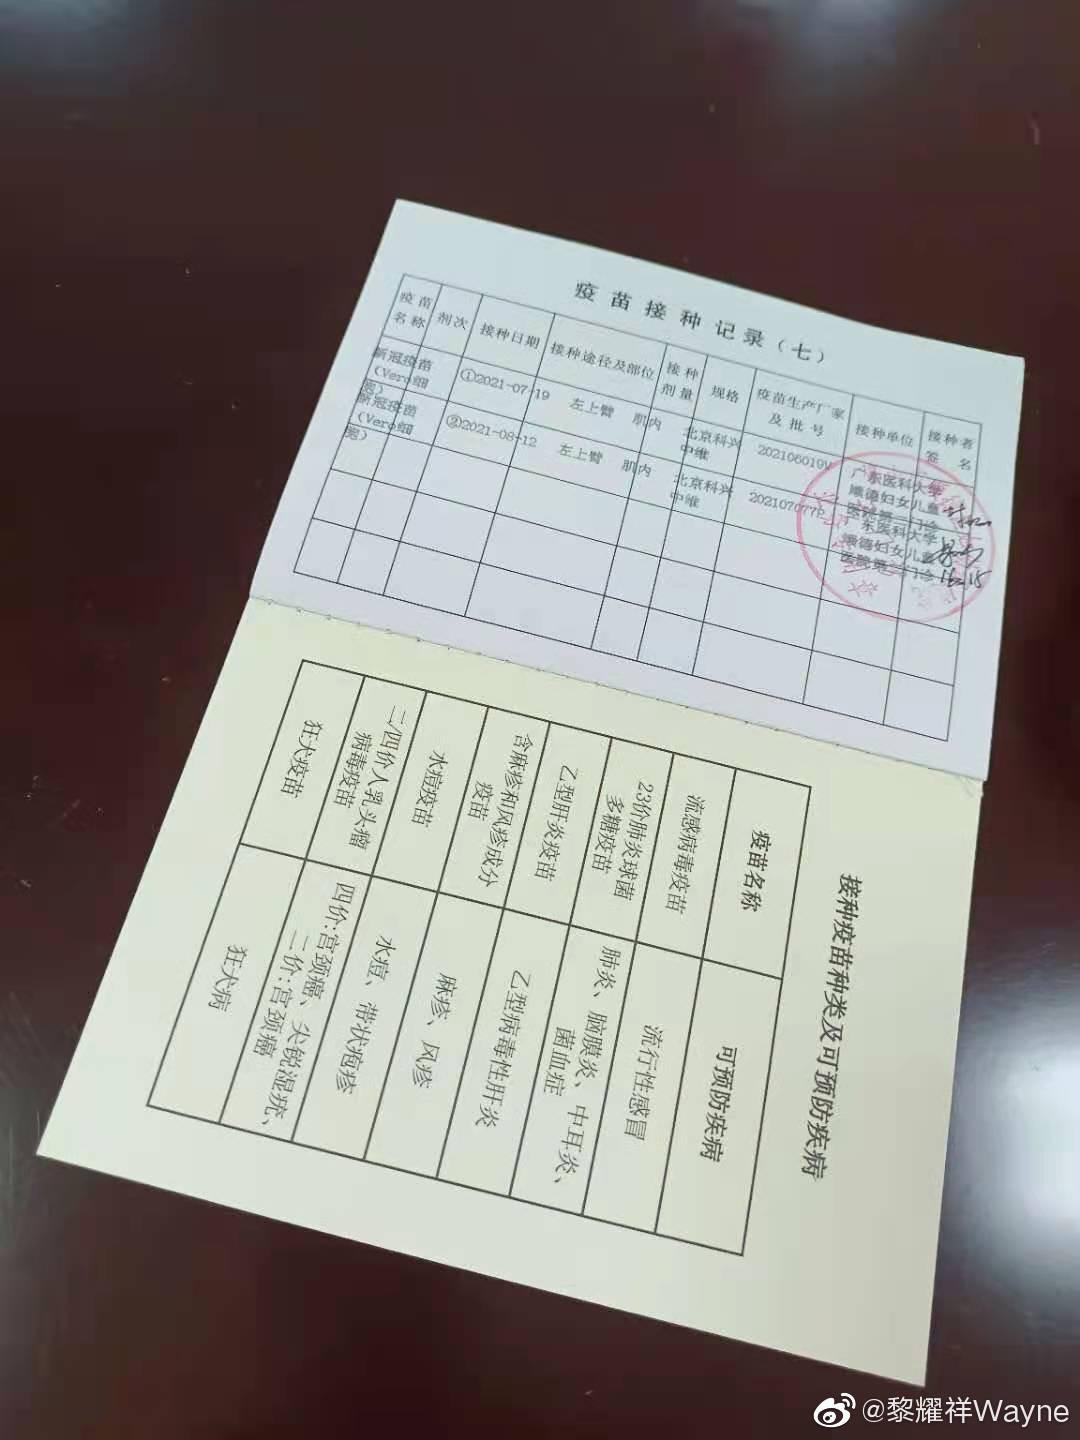 疫苗接种记录（七）
疫苗
名称
剂次
接种日期
接种途径及部位
接种
剂量
规格
疫苗生产厂家
及批号
接种单位
接种者
签名
新冠疫苗
（Vero细
胞）
①2021-07-19
左上臂 肌内
北京科兴
中维
202106019V
广东医科大学
顺德妇女儿童
新冠疫苗
（Vero细
胞）
②2021-08-12
左上臂 肌内
北京科兴
中维
东医科大学
顺德妇女儿童
接种疫苗种类及可预防疾病
疫苗名称
可预防疾病
流感病毒疫苗
流行性感冒
23价肺炎球菌
多糖疫苗
肺炎、脑膜炎、中耳炎、
菌血症
乙型肝炎疫苗
乙型病毒性肝炎
含麻疹和风疹成分
疫苗
麻疹、风疹
水痘疫苗
水痘、带状疱疹
二/四价人乳头瘤
病毒疫苗
四价:宫颈癌、尖锐湿疣、
二价:宫颈癌
狂犬疫苗
狂犬病
@黎耀祥Wayne